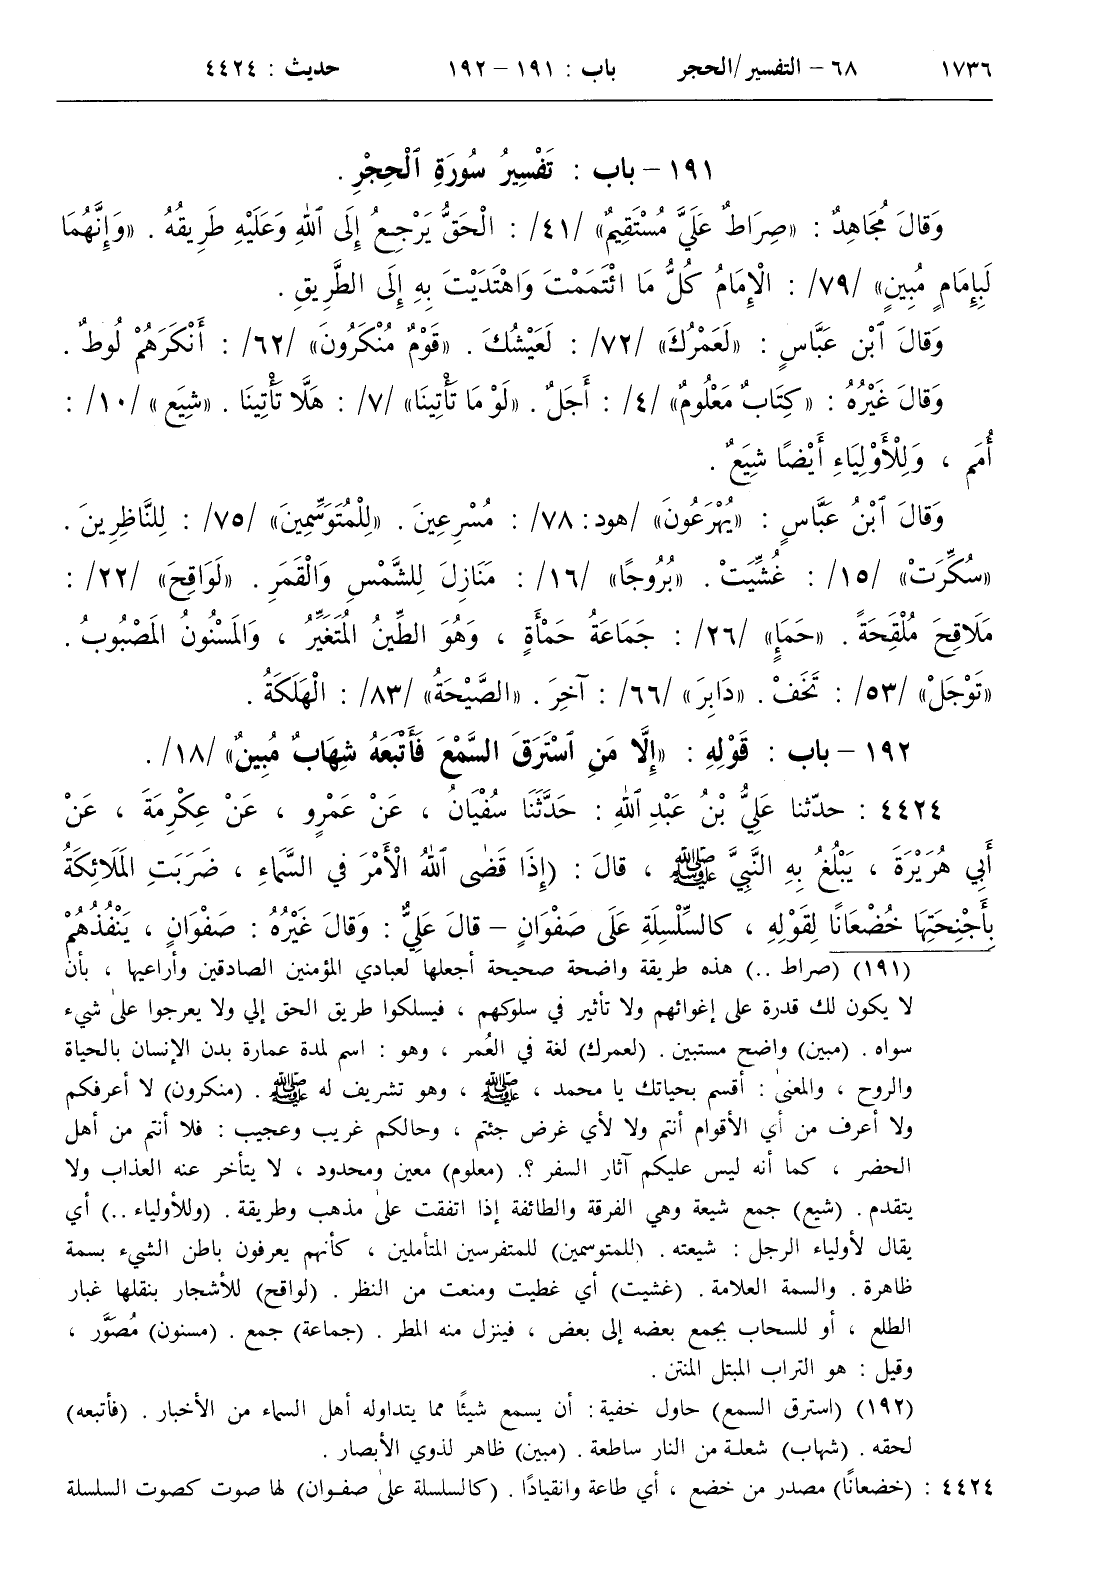 ١٧٣٦ ٦٨ – التفسير/الحجر باب : ١٩١ – ١٩٢ حديث : ٤٤٢٤
١٩١ – باب : تَفْسِيرُ سُورَةِ ٱلْحِجْرِ .
وَقالَ مُجَاهِدٌ : «صِرَاطٌ عَلَيَّ مُسْتَقِيمٌ» /٤١/ : الْحَقُّ يَرْجِعُ إِلَى ٱللهِ وَعَلَيْهِ طَرِيقُهُ . «وَإِنَّهُمَا
لَبِإِمَامٍ مُبِينٍ» /٧٩/ : الْإِمَامُ كُلُّ مَا ائْتَمَمْتَ وَاهْتَدَيْتَ بِهِ إِلَى الطَّرِيقِ .
وَقالَ ٱبْن عَبَّاسٍ : «لَعَمْرُكَ» /٧٢/ : لَعَيْشُكَ . «قَوْمٌ مُنْكَرُونَ» /٦٢/ : أَنْكَرَهُمْ لُوطٌ .
وَقالَ غَيْرُهُ : «كِتَابٌ مَعْلُومٌ» /٤/ : أَجَلٌ . «لَوْ مَا تَأْتِينَا» /٧/ : هَلَّا تَأْتِينَا . «شِيَعِ» /١٠/ :
أُمَمٍ ، وَلِلْأَوْلِيَاءِ أَيْضًا شِيَعٌ .
وَقالَ ٱبْنُ عَبَّاسٍ : «يُهْرَعُونَ» /هود: ٧٨/ : مُسْرِعِينَ . «لِلْمُتَوَسِّمِينَ» /٧٥/ : لِلنَّاظِرِينَ .
«سُكِّرَتْ» /١٥/ : غُشِّيَتْ . «بُرُوجًا» /١٦/ : مَنَازِلَ لِلشَّمْسِ وَالْقَمَرِ . «لَوَاقِحَ» /٢٢/ :
مَلَاقِحَ مُلْقِحَةً . «حَمَإٍ» /٢٦/ : جَمَاعَةُ حَمْأَةٍ ، وَهُوَ الطِّينُ الْمُتَغَيِّرُ ، وَالْمَسْنُونُ الْمَصْبُوبُ .
«تَوْجَلْ» /٥٣/ : تَخَفْ . «دَابِرَ» /٦٦/ : آخِرَ . «الصَّيْحَةُ» /٨٣/ : الْهَلَكَةُ .
١٩٢ – باب : قَوْلِهِ : «إِلَّا مَنِ ٱسْتَرَقَ السَّمْعَ فَأَتْبَعَهُ شِهَابٌ مُبِينٌ» /١٨/ .
٤٤٢٤ : حدّثنا عَلِيُّ بْنُ عَبْدِ ٱللهِ : حَدَّثَنَا سُفْيَانُ ، عَنْ عَمْرٍو ، عَنْ عِكْرِمَةَ ، عَنْ
أَبِي هُرَيْرَةَ ، يَبْلُغُ بِهِ النَّبِيَّ ﷺ ، قالَ : (إِذَا قَضَى ٱللهُ الْأَمْرَ في السَّمَاءِ ، ضَرَبَتِ الْمَلَائِكَةُ
بِأَجْنِحَتِهَا خُضْعَانًا لِقَوْلِهِ ، كالسِّلْسِلَةِ عَلَى صَفْوَانٍ – قالَ عَلِيٌّ : وَقالَ غَيْرُهُ : صَفْوَانٍ ، يَنْفُذُهُمْ
(١٩١) (صراط ..) هذه طريقة واضحة صحيحة أجعلها لعبادي المؤمنين الصادقين وأراعيها ، بأن
لا يكون لك قدرة على إغوائهم ولا تأثير في سلوكهم ، فيسلكوا طريق الحق إلي ولا يعرجوا على شيء
سواه . (مبين) واضح مستبين . (لعمرك) لغة في العُمر ، وهو : اسم لمدة عمارة بدن الإنسان بالحياة
والروح ، والمعنى : أقسم بحياتك يا محمد ، ﷺ ، وهو تشريف له ﷺ . (منكرون) لا أعرفكم
ولا أعرف من أي الأقوام أنتم ولا لأي غرض جئتم ، وحالكم غريب وعجيب : فلا أنتم من أهل
الحضر ، كما أنه ليس عليكم آثار السفر ؟. (معلوم) معين ومحدود ، لا يتأخر عنه العذاب ولا
يتقدم . (شيع) جمع شيعة وهي الفرقة والطائفة إذا اتفقت على مذهب وطريقة . (وللأولياء ..) أي
يقال لأولياء الرجل : شيعته . (للمتوسمين) للمتفرسين المتأملين ، كأنهم يعرفون باطن الشيء بسمة
ظاهرة . والسمة العلامة . (غشيت) أي غطيت ومنعت من النظر . (لواقح) للأشجار بنقلها غبار
الطلع ، أو للسحاب بجمع بعضه إلى بعض ، فينزل منه المطر . (جماعة) جمع . (مسنون) مُصَوَّر ،
وقيل : هو التراب المبتل المنتن .
(١٩٢) (استرق السمع) حاول خفية : أن يسمع شيئًا مما يتداوله أهل السماء من الأخبار . (فأتبعه)
لحقه . (شهاب) شعلة من النار ساطعة . (مبين) ظاهر لذوي الأبصار .
٤٤٢٤ : (خضعانًا) مصدر من خضع ، أي طاعة وانقيادًا . (كالسلسلة على صفوان) لها صوت كصوت السلسلة